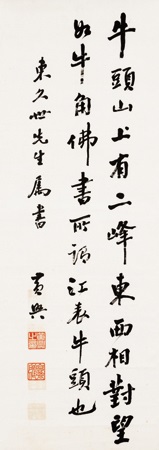 牛頭山上有二峰東西相對望
如牛角佛書所謂江表牛頭也
東久世先生屬書
黃興